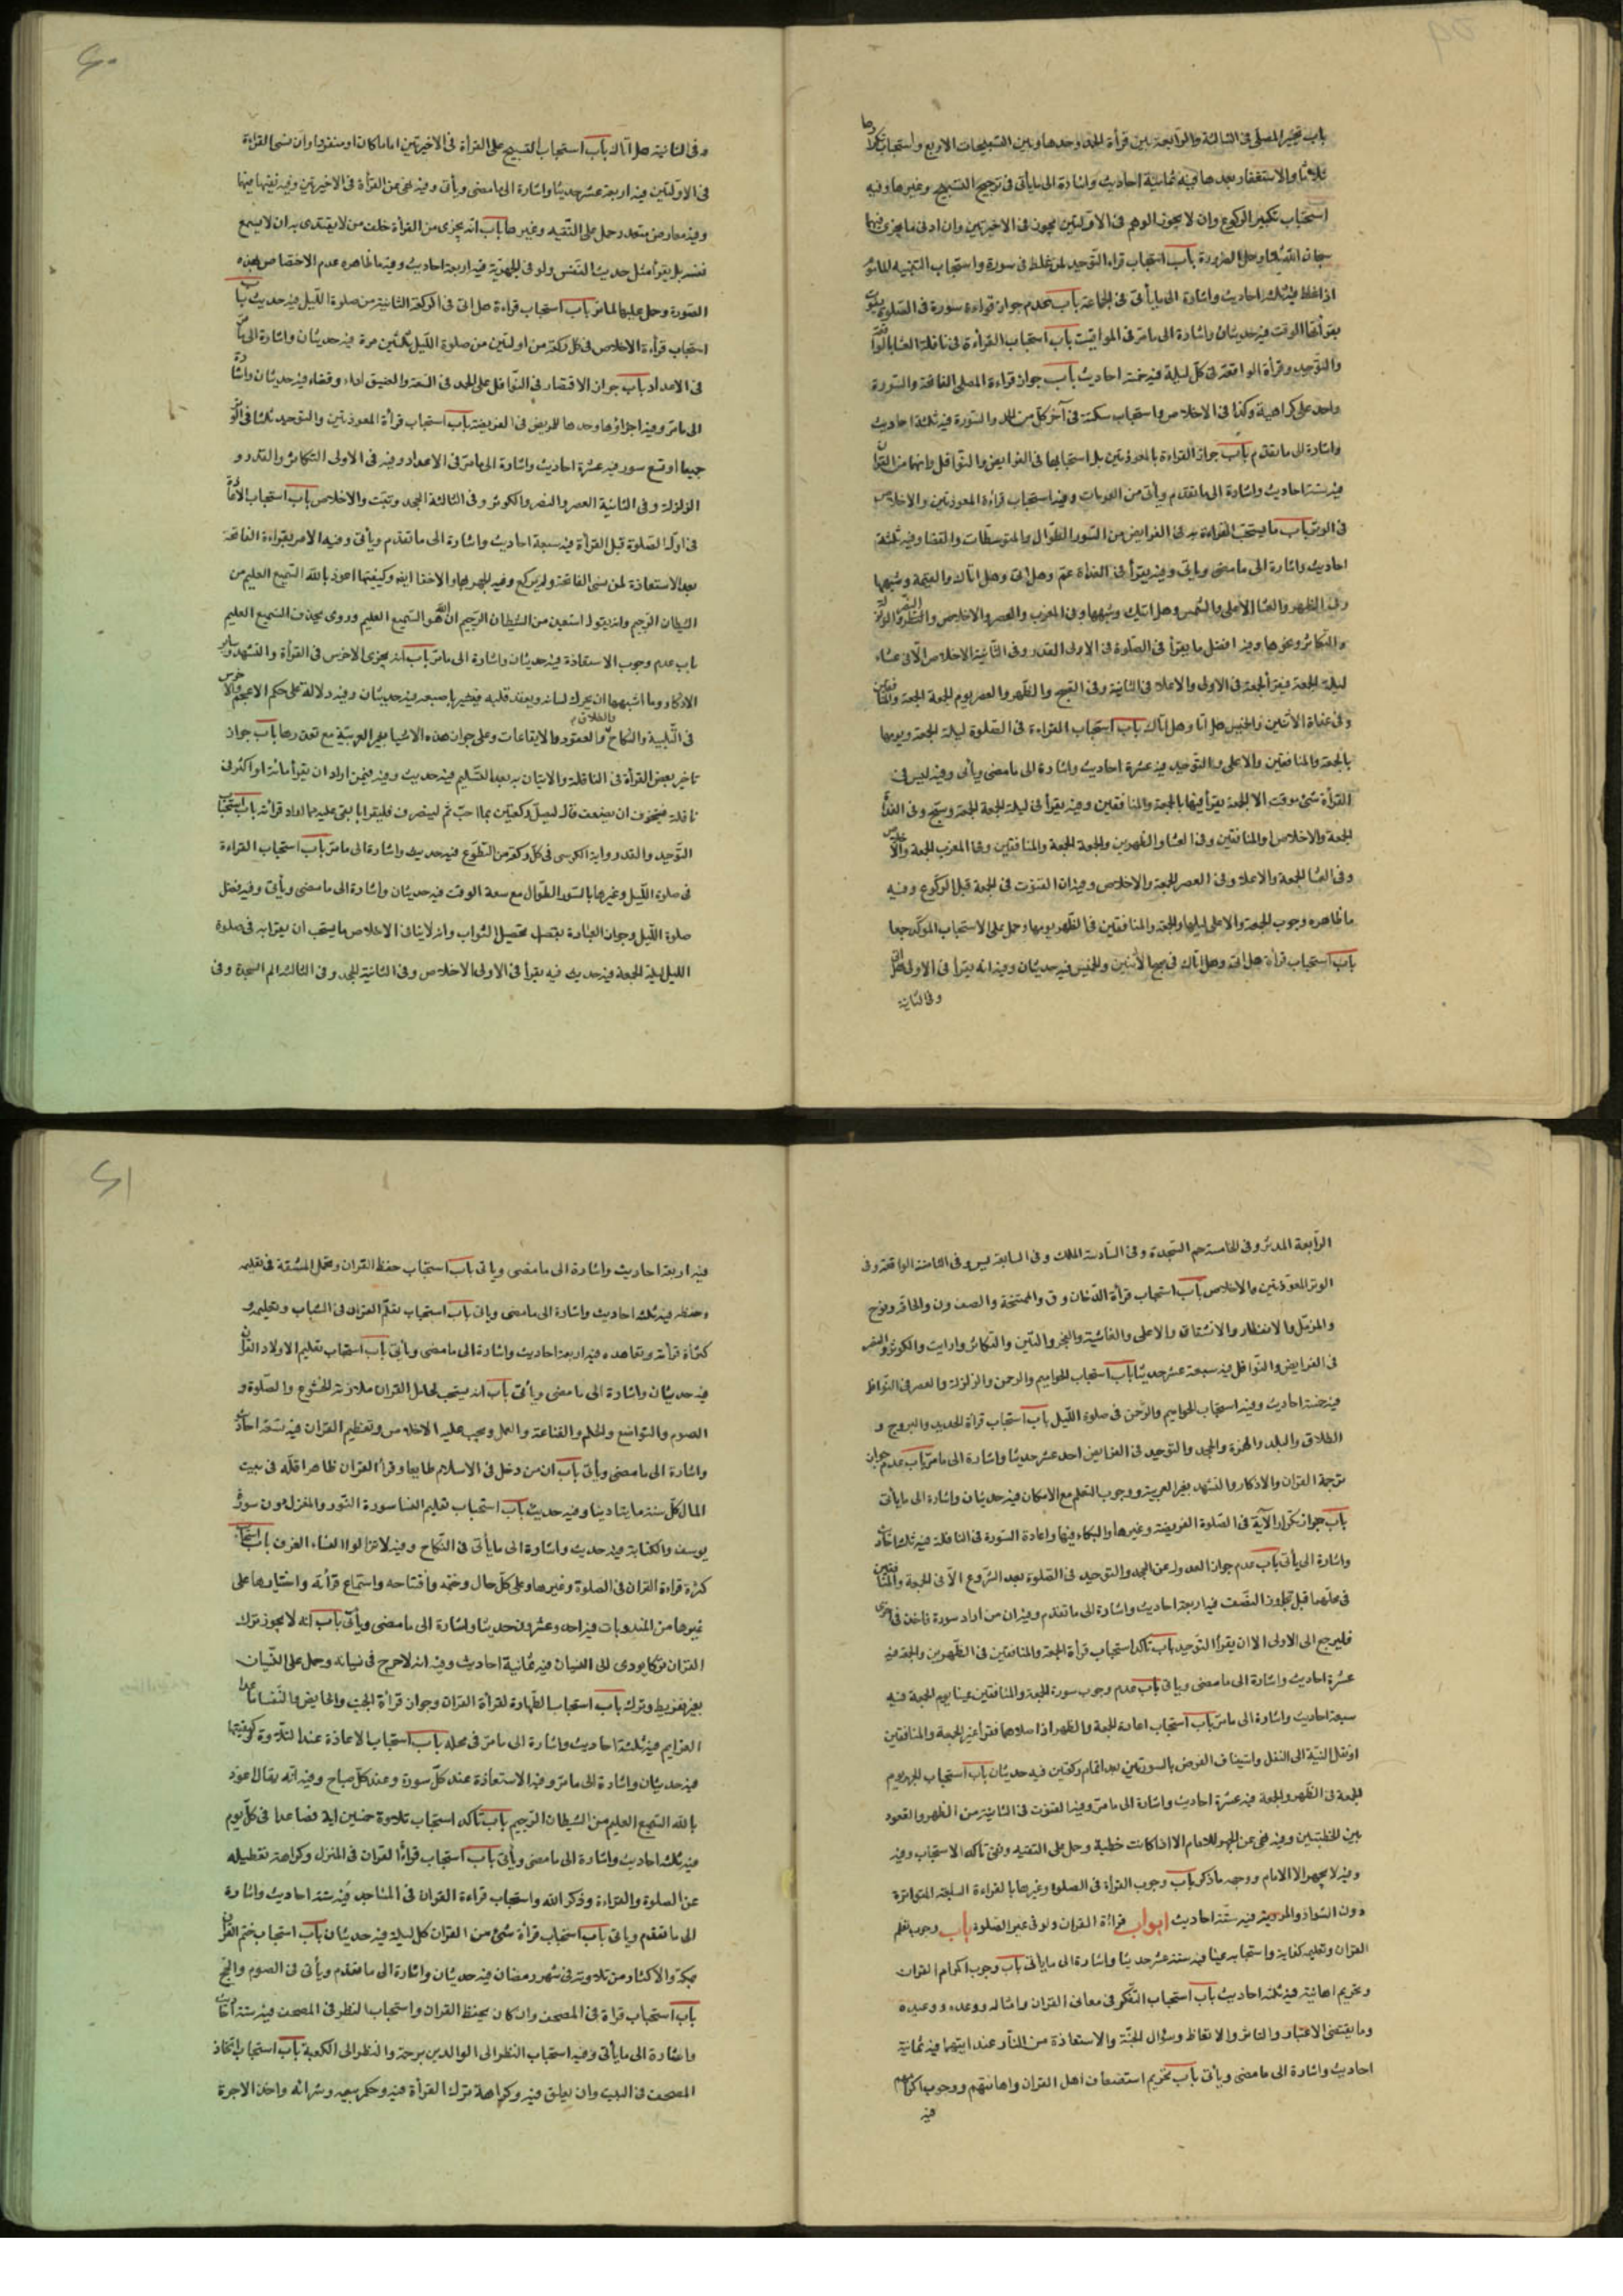 باب تخيير المصلي في الثالثة والرابعة بين قرأة الحمد وحدها وبين التسبيحات الاربع واستحباب تكرارها
ثلاثا والاستغفار بعدها فيه ثمانية احاديث واشارة الى ما يأتي في ترجيح التسبيح وغيرها وفيه
استحباب تكبير الركوع وان لا يجوز الوهم في الاولتين يجوز في الاخيرتين وان ادنى ما يجزى فيهما
سبحان الله وحمل الضرورة باب استحباب قراءة التوحيد لمن غلط في سورة واستحباب التنبيه للمأموم
اذا غلط فيه ثلثة احاديث واشارة الى ما يأتي في الجماعة باب عدم جواز قراءة سورة في الصلوة يفوت
بقرأتها الوقت فيه حديثان واشارة الى ما مر في المواقيت باب استحباب القرأة في نافلة العشا بالواقعة
والتوحيد وقرأة الواقعة في كل ليلة فيه خمسة احاديث باب جواز قراءة المصلي الفاتحة والسورة
واحد على كراهية وكذا في الاخلاص واستحباب سكتة في آخر كل من الحمد والسورة فيه ثلثة احاديث
واشارة الى ما تقدم باب جواز القراءة بالمعوذتين بل استحبابها في الفرايض والنوافل وانهما من القران
فيه ستة احاديث واشارة الى ما تقدم ويأتي من العمومات وفيه استحباب قراءة المعوذتين والاخلاص
في الوتر باب ما يستحب القراءة به في الفرايض من السور الطوال والمتوسطات والقصار وفيه ثلثة
احاديث واشارة الى ما مضى ويأتي وفيه يقرأ في الغداة عم وهل اتى وهل اتاك والقيمة وشبهها
وفي الظهر والعشا الاعلى والشمس وهل اتيك وشبهها وفي المغرب والعصر والاخلاص والنصر والزلزلة
والتكاثر ونحوها وفيه افضل ما يقرأ في الصلوة في الاولى القدر وفي الثانية الاخلاص الا في عشاء
ليلة الجمعة فيقرأ الجمعة في الاولى والاعلا في الثانية وفي الصبح والظهر والعصر يوم الجمعة الجمعة والمنافقين
وفي غداة الاثنين والخميس هل اتا وهل اتاك باب استحباب القراءة في الصلوة ليلة الجمعة ويومها
بالجمعة والمنافقين والاعلى والتوحيد فيه عشرة احاديث واشارة الى ما مضى ويأتي وفيه ليس في
القرأة شئ موقت الا الجمعة يقرأ فيها بالجمعة والمنافقين وفيه يقرأ في ليلة الجمعة الجمعة وسبح وفي الغداة
الجمعة والاخلاص او المنافقين وفي العشا والظهرين والجمعة الجمعة والمنافقين وفي المغرب الجمعة والاخلاص
وفي العشا الجمعة والاعلا وفي العصر الجمعة والاخلاص وفيه ان القنوت في الجمعة قبل الركوع وفيه
ما ظاهره وجوب الجمعة والاعلى ليلها والجمعة والمنافقين في الظهر يومها وحمل على الاستحباب الموكد جمعا
باب استحباب قرأة هل اتى وهل اتاك في صبح الاثنين والخميس فيه حديثان وفيه انه يقرأ في الاولى هل اتى
وفي الثانية
وفي الثانية هل اتاك باب استحباب التسبيح على القراة في الاخيرتين اماما كان او منفردا وان نسى القراءة
في الاولتين فيه اربعة عشر حديثا واشارة الى ما مضى ويأتي وفيه نهى عن القرأة في الاخيرتين وفيه نفيها فيها
وفيه معارض متعدد حمل على التقيه وغيرها باب انه يجزى من القرأة خلف من لا يقتدى به ان لا يسمع
نفسه بل يقرأ مثل حديث النفس ولو في الجهرية فيه اربعة احاديث وفيه ما ظاهره عدم الاختصاص بهذه
الصورة وحمل عليها لما مر باب استحباب قراءة هل اتى في الركعة الثانية من صلوة الليل فيه حديث باب
استحباب قرأءة الاخلاص في كل ركعة من اولتين من صلوة الليل ثلثين مرة فيه حديثان واشارة الى ما مر
في الاعداد باب جواز الاقتصار في النوافل على الحمد في السعة والضيق اداء وقضاء فيه حديثان واشارة
الى ما مر وفيه اجزاؤها وحدها للمريض في الفريضة باب استحباب قرأة المعوذتين والتوحيد ثلثا في الوتر
جميعا او تسع سور فيه عشرة احاديث واشارة الى ما مر في الاعداد وفيه في الاولى التكاثر والقدر و
الزلزلة وفي الثانية العصر والنصر والكوثر وفي الثالثة الجحد وتبت والاخلاص باب استحباب الاستعاذة
في اول الصلوة قبل القرأة فيه سبعة احاديث واشارة الى ما تقدم ويأتي وفيه الامر بقراءة الفاتحة
بعد الاستعاذة لمن نسى الفاتحة ولم يركع وفيه الجهر بها والاخفا ايضه وكيفيتها اعوذ بالله السميع العليم من
الشيطان الرجيم وانه يقول استعين من الشيطان الرجيم ان الله هو السميع العليم وروى بحذف السميع العليم
باب عدم وجوب الاستعاذة فيه حديثان واشارة الى ما مر باب انه يجزى الاخرس في القرأة والتشهد وساير
الاذكار وما اشبهها ان يحرك لسانه ويعقد قلبه فيشير باصبعه فيه حديثان وفيه دلالة على حكم الاعجم والاخرس
في التلبية والنكاح والطلاق والعقود والايقاعات وعلى جواز هذه الاشيا بغير العربية مع تعذرها باب جواز
تاخير بعض القرأة في النافلة والاتيان به بعد التسليم فيه حديث وفيه فيمن اراد ان يقرأ مائة او اكثر في
نافلة فيتخوف ان يضعف قال ليصل ركعتين بما احب ثم لينصرف فليقرا ما بقى عليه مما اراد قرأته باب استحباب
التوحيد والقدر واية الكرسى في كل ركعة من التطوع فيه حديث واشارة الى ما مر باب استحباب القراءة
في صلوة الليل وغيرها بالسور الطوال مع سعة الوقت فيه حديثان واشارة الى ما مضى ويأتي وفيه فضل
صلوة الليل وجواز العبادة بقصد تحصيل الثواب وانه لا ينافى الاخلاص ما يستحب ان يقرا به في صلوة
الليل ليلة الجمعة فيه حديث فيه يقرأ في الاولى الاخلاص وفي الثانية الجحد وفي الثالثة الم السجدة وفي
الرابعة المدثر وفي الخامسة حم السجدة وفي السادسة الملك وفي السابعة يس وفي الثامنة الواقعة وفي
الوتر المعوذتين والاخلاص باب استحباب قرأة الدخان وق والممتحنة والصف ون والحاقة ونوح
والمزمل والانفطار والانشقاق والاعلى والغاشية والفجر والتين والتكاثر وارايت والكوثر والنصر
في الفرايض والنوافل فيه سبعة عشر حديثا باب استحباب الحواميم والرحمن والزلزلة والعصر في النوافل
فيه خمسة احاديث وفيه استحباب الحواميم والرحمن في صلوة الليل باب استحباب قرأة الحديد والبروج و
الطلاق والبلد والهمزة والجحد والتوحيد في الفرايض احد عشر حديثا واشارة الى ما مر باب عدم جواز
ترجمة القران والاذكار والتشهد بغير العربية ووجوب التعلم مع الامكان فيه حديثان واشارة الى ما يأتي
باب جواز تكرار الآية في الصلوة الفريضة وغيرها والبكاء فيها واعادة السورة في النافلة فيه ثلثة احاديث
واشارة الى يأتي باب عدم جواز العدول عن الجحد والتوحيد في الصلوة بعد الشروع الا في الجمعة والمنافقين
في محلهما قبل تجاوز النصف فيه اربعة احاديث واشارة الى ما تقدم وفيه ان من اراد سورة فاخذ في اخرى
فليرجع الى الاولى الا ان يقرأ التوحيد باب تأكد استحباب قرأة الجمعة والمنافقين في الظهرين والجمعة فيه
عشرة احاديث واشارة الى ما مضى وياتي باب عدم وجوب سورة الجمعة والمنافقين عينا يوم الجمعة فيه
سبعة احاديث واشارة الى ما مر باب استحباب اعادة الجمعة والظهر اذا صلاهما فقرأ غير الجمعة والمنافقين
او نقل النية الى النفل واستيناف الفرض بالسورتين بعد اتمام ركعتين فيه حديثان باب استحباب الجهر يوم
الجمعة في الظهر والجمعة فيه عشرة احاديث واشارة الى ما مر وفيه القنوت في الثانية من الظهر والقعود
بين الخطبتين وفيه نهى عن الجهر للامام الا اذا كانت خطبة وحمل على التقيه ونفى تأكد الاستحباب وفيه
وفيه لا يجهر الا الامام ووجهه ما ذكر باب وجوب القرأة في الصلوة وغيرها بالقراءة السبعة المتواترة
دون الشواذ والمروية فيه ستة احاديث ابواب قرأة القران ولو في غير الصلوة باب وجوب تعلم
القران وتعليمه كفاية واستحبابه عينا فيه ستة عشر حديثا واشارة الى ما يأتي باب وجوب اكرام القران
وتحريم اهانته فيه ثلثة احاديث باب استحباب التفكر في معاني القران وامثاله ووعده ووعيده
وما يقتضى الاعتبار والتاثر والاتعاظ وسؤال الجنة والاستعاذة من النار عند ايتيهما فيه ثمانية
احاديث واشارة الى ما مضى ويأتي باب تحريم استضعاف اهل القران واهانتهم ووجوب اكرامهم
فيه
فيه اربعة احاديث واشارة الى ما مضى وياتي باب استحباب حفظ القران وتحمل المشقة في تعليمه
وحفظه فيه ثلثة احاديث واشارة الى ما مضى وياتي باب استحباب تعلم القران في الشباب وتعليمه و
كثرة قرأته وتعاهده فيه اربعة احاديث واشارة الى ما مضى ويأتي باب استحباب تعليم الاولاد القران
فيه حديثان واشارة الى ما مضى ويأتي باب انه يستحب لحامل القران ملازمة الخشوع والصلوة و
الصوم والتواضع والحلم والقناعة والعمل ويجب عليه الاخلاص وتعظيم القران فيه تسعة احاديث
واشارة الى ما مضى ويأتي باب ان من دخل في الاسلام طايعا وقرأ القران ظاهرا فله في بيت
المال كل سنة مايتا دينار وفيه حديث باب استحباب تعليم النسا سورة النور والمغزل دون سورة
يوسف والكتابة فيه حديث واشارة الى ما يأتي في النكاح وفيه لا تنزلوا النساء الغرف باب استحباب
كثرة قراءة القران في الصلوة وغيرها وعلى كل حال وختمه وافتتاحه واستماع قرأته واختيارها على
غيرها من المندوبات فيه احد وعشرون حديثا واشارة الى ما مضى ويأتي باب انه لا يجوز ترك
القران تركا يودى الى النسيان فيه ثمانية احاديث وفيه انه لا حرج في نسيانه وحمل على النسيان
بغير تفريط وترك باب استحباب الطهارة لقرأة القران وجواز قرأة الجنب والحايض والنفساء ما عدا
العزايم فيه ثلثة احاديث واشارة الى ما مر في محله باب استحباب الاعاذة عند التلاوة وكيفيتها
فيه حديثان واشارة الى ما مر وفيه الاستعاذة عند كل سورة وعند كل صباح وفيه انه يقال اعوذ
بالله السميع العليم من الشيطان الرجيم باب تأكد استحباب تلاوة خمسين اية فصاعدا في كل يوم
فيه ثلثة احاديث واشارة الى ما مضى ويأتي باب استحباب قراءة القران في المنزل وكراهة تعطيله
عن الصلوة والقراءة وذكر الله واستحباب قراءة القران في المساجد فيه ستة احاديث واشارة
الى ما تقدم وياتي باب استحباب قرأة شئ من القران كل ليلة فيه حديثان باب استحباب ختم القران
بمكة والاكثار من تلاوته في شهر رمضان فيه حديثان واشارة الى ما تقدم ويأتي في الصوم والحج
باب استحباب قراة في المصحف وان كان يحفظ القران واستحباب النظر في المصحف فيه ستة احاديث
واشارة الى ما يأتي وفيه استحباب النظر الى الوالدين برحمة والنظر الى الكعبة باب استحباب اتخاذ
المصحف في البيت وان يعلق فيه وكراهة ترك القرأة فيه وحكم بيعه وشرائه واخذ الاجرة